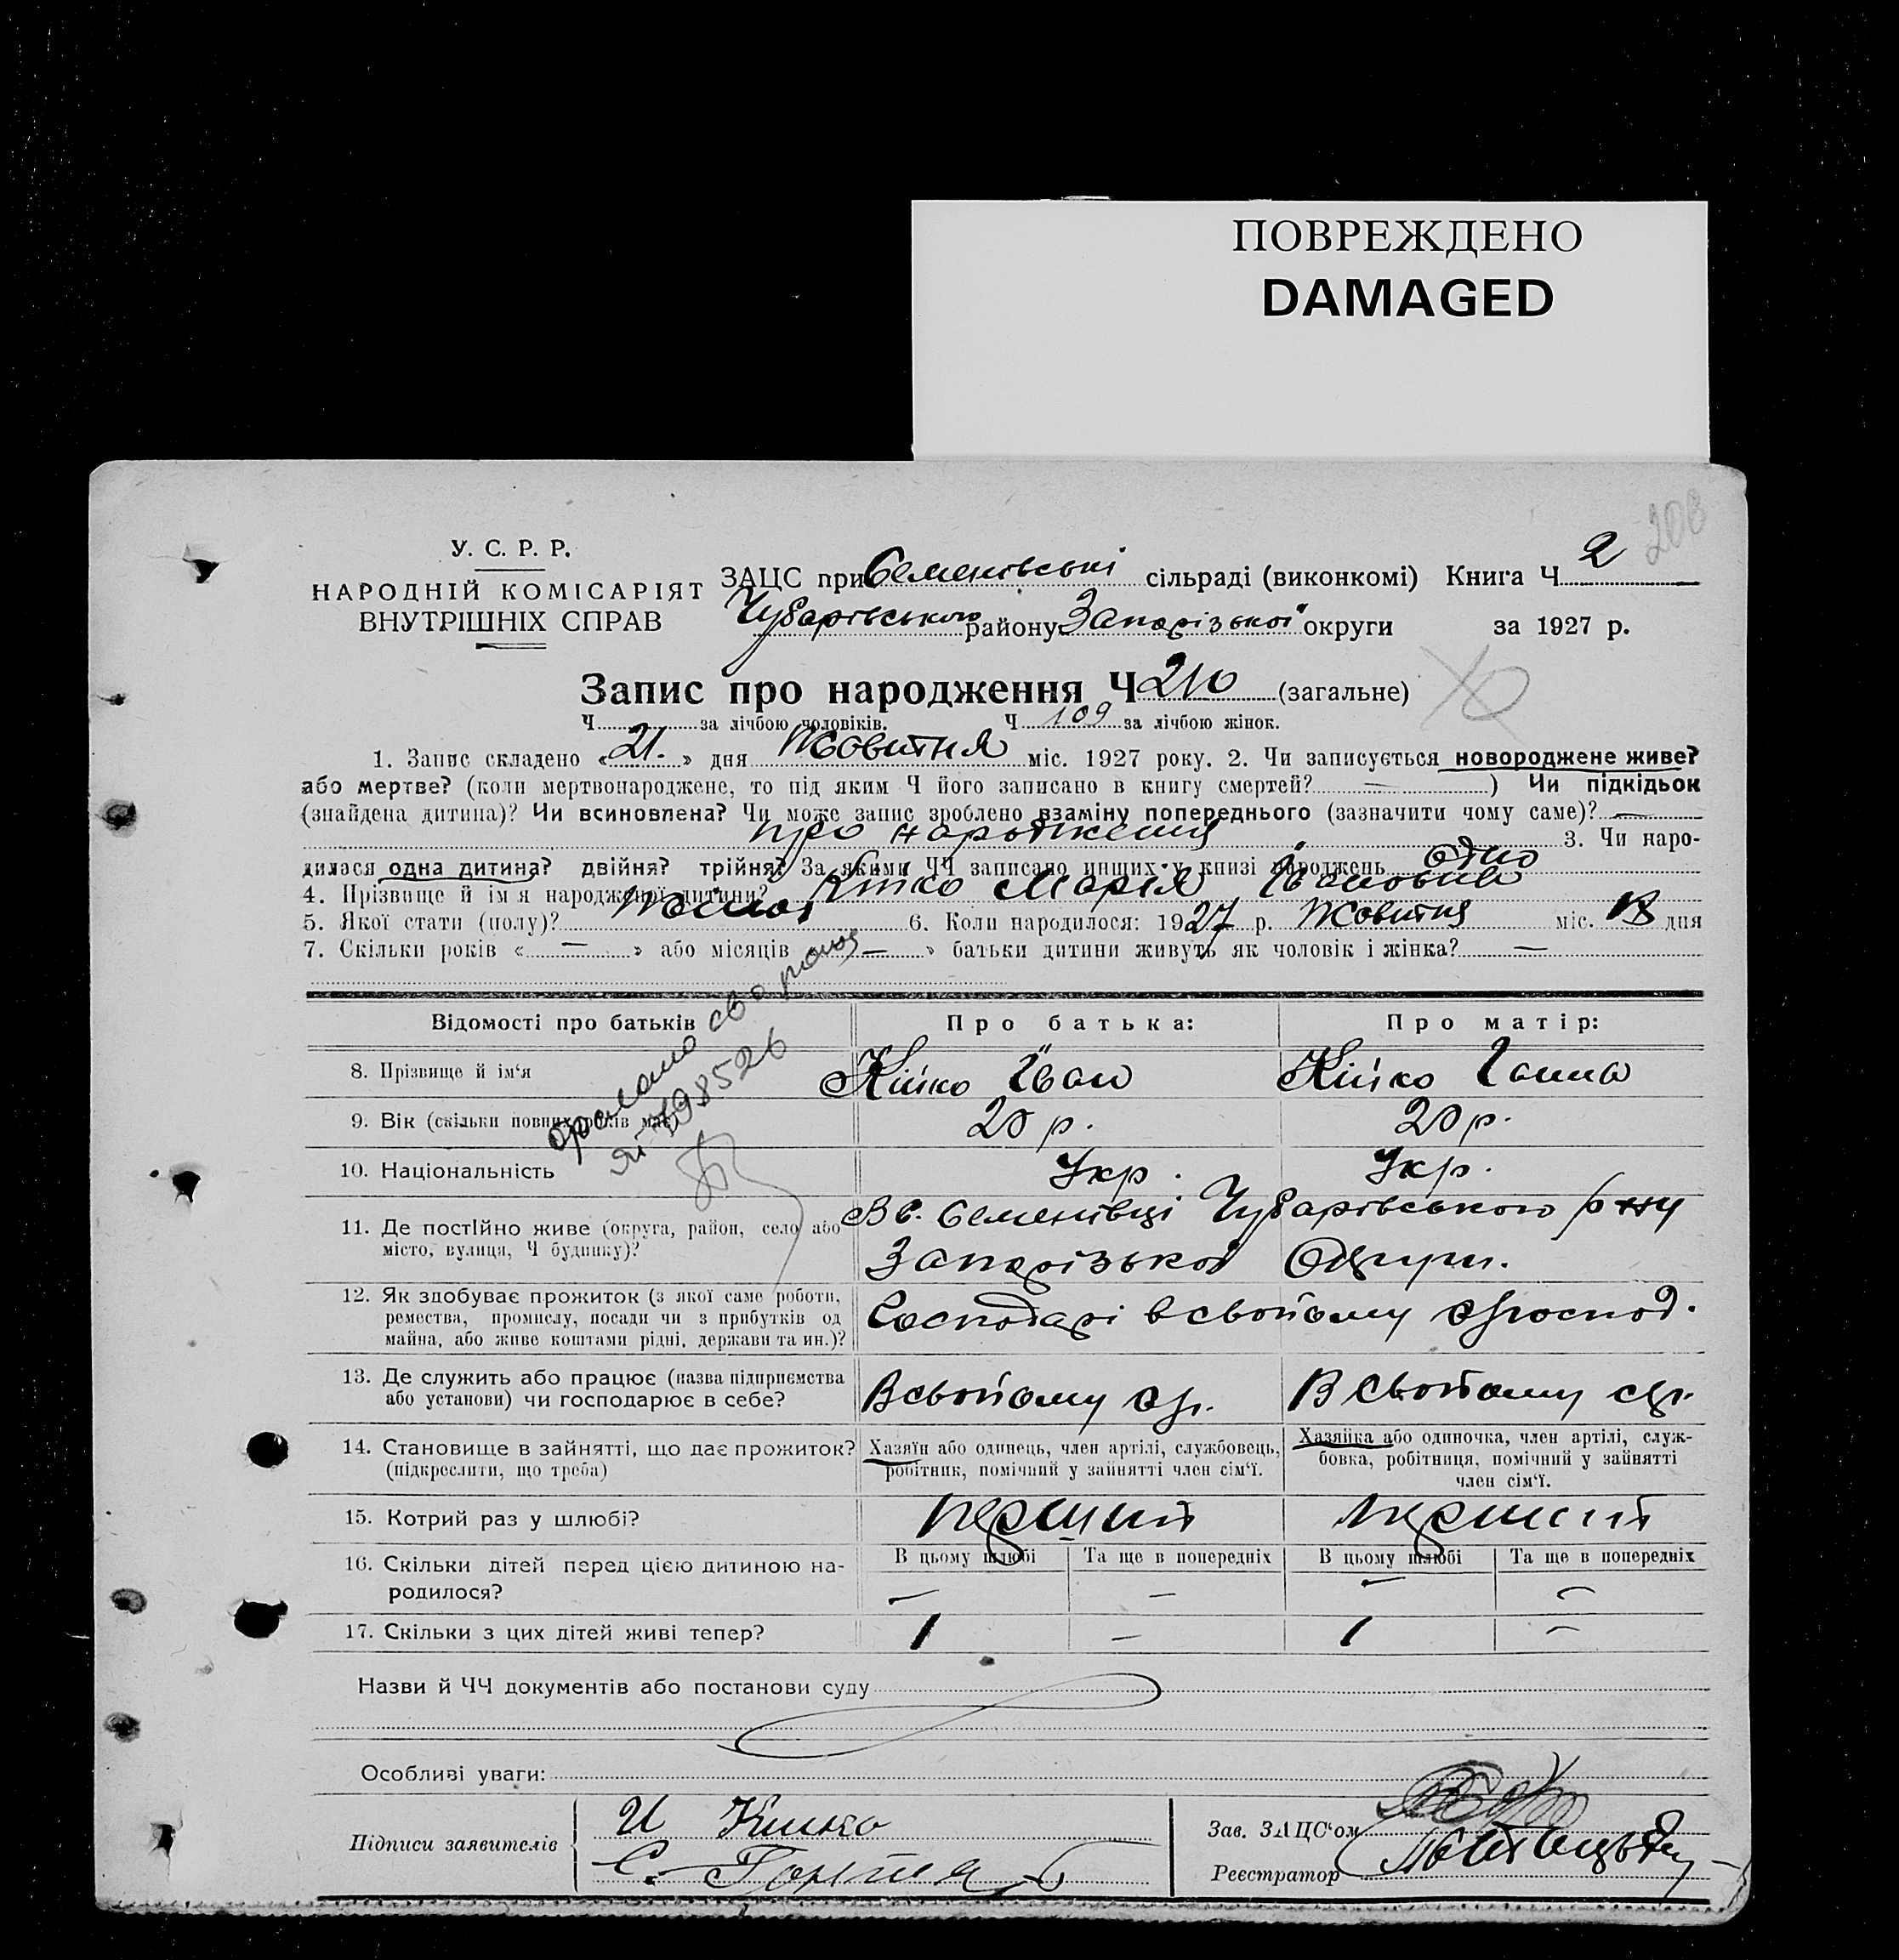 ПОВРЕЖДЕНО
DAMAGED
208
У. С. Р. Р.
НАРОДНІЙ КОМІСАРІЯТ
ВНУТРІШНІХ СПРАВ
ЗАЦС при Семенівські сільраді (виконкомі) Книга Ч 2
Чубарівського району Запорізької округи за 1927 р.
Запис про народження Ч 210 (загальне)
Ч за лічбою чоловіків. Ч 109 за лічбою жінок.
1. Запис складено « 21. » дня Жовтня міс. 1927 року. 2. Чи записується новороджене живе?
або мертве? (коли мертвонароджене, то під яким Ч його записано в книгу смертей? — ) Чи підкідьок
(знайдена дитина)? Чи всиновлена? Чи може запис зроблено взаміну попереднього (зазначити чому саме)? —
про народження 3. Чи наро-
дилася одна дитина? двійня? трійня? За якими ЧЧ записано инших у книзі народжень одно
4. Прізвище й ім'я народженої дитини? Кійко Марія Івановна
5. Якої стати (полу)? 6. Коли народилося: 1927 р. Жовтня міс. дня
7. Скільки років « — » або місяців « — » батьки дитини живуть як чоловік і жінка? —
Відомості про батьків Про батька: Про матір:
8. Прізвище й ім'я Кійко Іван Кійко Ганна
9. Вік (скільки повних років має) 20 р. 20 р.
798526
10. Національність Укр. Укр.
11. Де постійно живе (округа, район, село або
місто, вулиця, Ч будинку)?
В с. Семенівці Чубарівського р-ну
Запорізької Округи.
12. Як здобуває прожиток (з якої саме роботи,
ремества, промислу, посади чи з прибутків од
майна, або живе коштами рідні, держави та ин.)?
Господарі в свойому господ.
13. Де служить або працює (назва підприємства
або установи) чи господарює в себе?
В свойому В свойому
14. Становище в зайнятті, що дає прожиток?
(підкреслити, що треба)
Хазяїн або одинець, член артілі, службовець,
робітник, помічний у зайнятті член сім'ї.
Хазяйка або одиночка, член артілі, служ-
бовка, робітниця, помічний у зайнятті
член сім'ї.
15. Котрий раз у шлюбі? перший перший
16. Скільки дітей перед цією дитиною на-
родилося?
В цьому шлюбі Та ще в попередніх В цьому шлюбі Та ще в попередніх
— — — —
17. Скільки з цих дітей живі тепер? 1 — 1 —
Назви й ЧЧ документів або постанови суду
Особливі уваги:
Підписи заявителів
И Кийко
С.
Зав. ЗАЦС'ом
Реєстратор